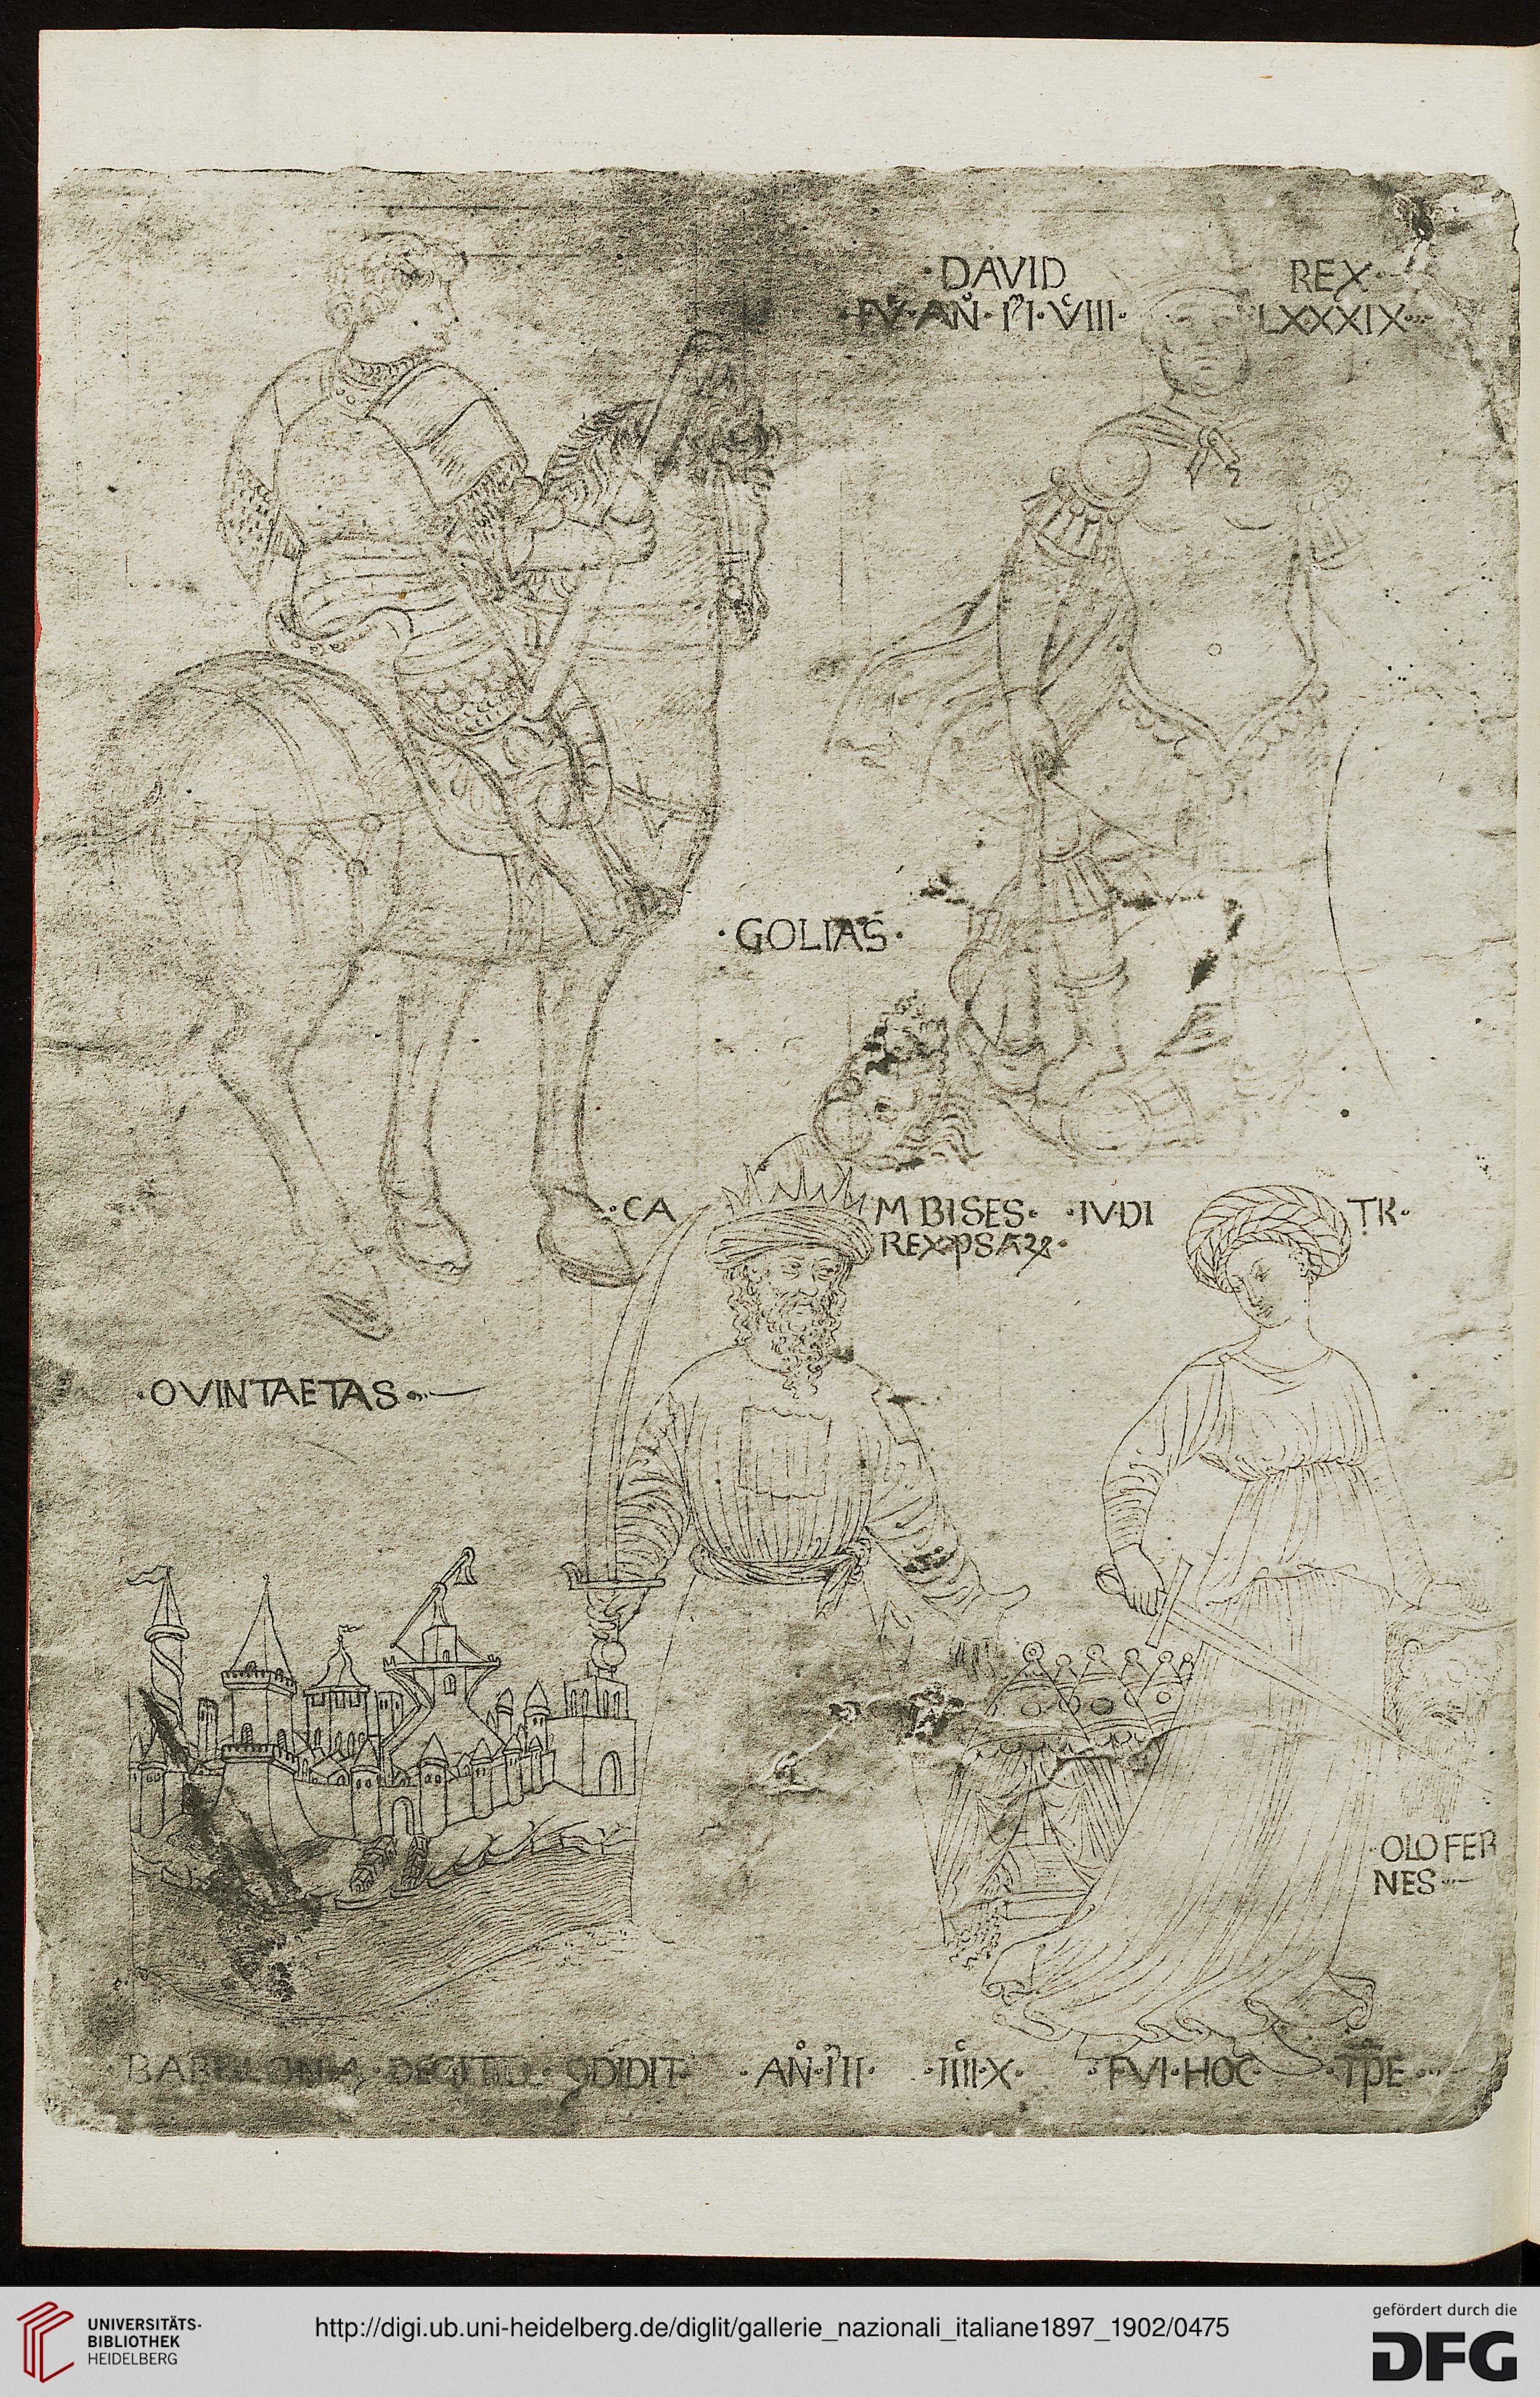 ·DAVID REX·
AN̊· VIII· LXXXIX·
·GOLIAS·
·CA MBISES· ·IVDI TK·
REX·
·OVINTAETAS·
·OLOFER
NES·
BABILONIA· ·AN̊· ·IIII·X· ·FVI·HOC· ·TPE·
UNIVERSITÄTS-
BIBLIOTHEK
HEIDELBERG
http://digi.ub.uni-heidelberg.de/diglit/gallerie_nazionali_italiane1897_1902/0475
gefördert durch die
DFG